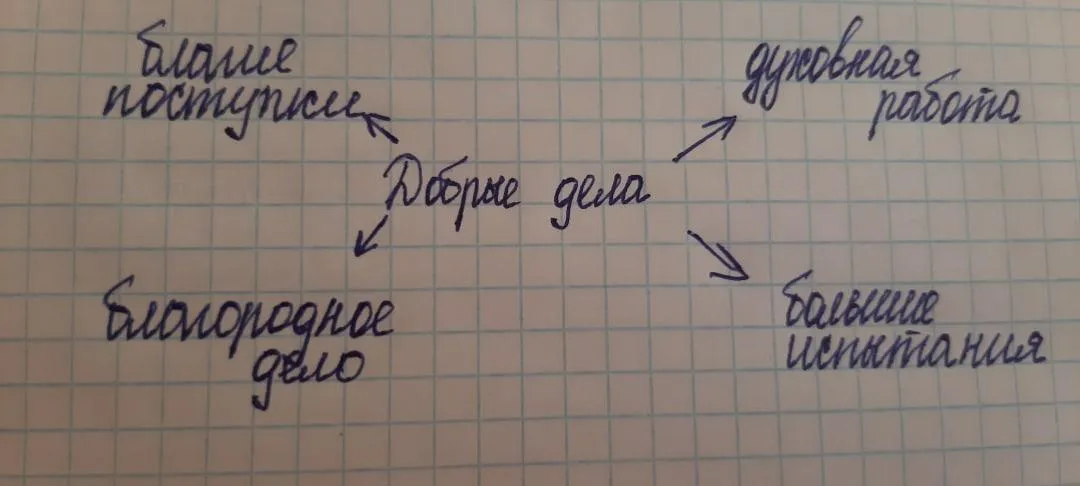 благие
поступки
духовная
работа
Добрые дела
благородное
дело
большие
испытания